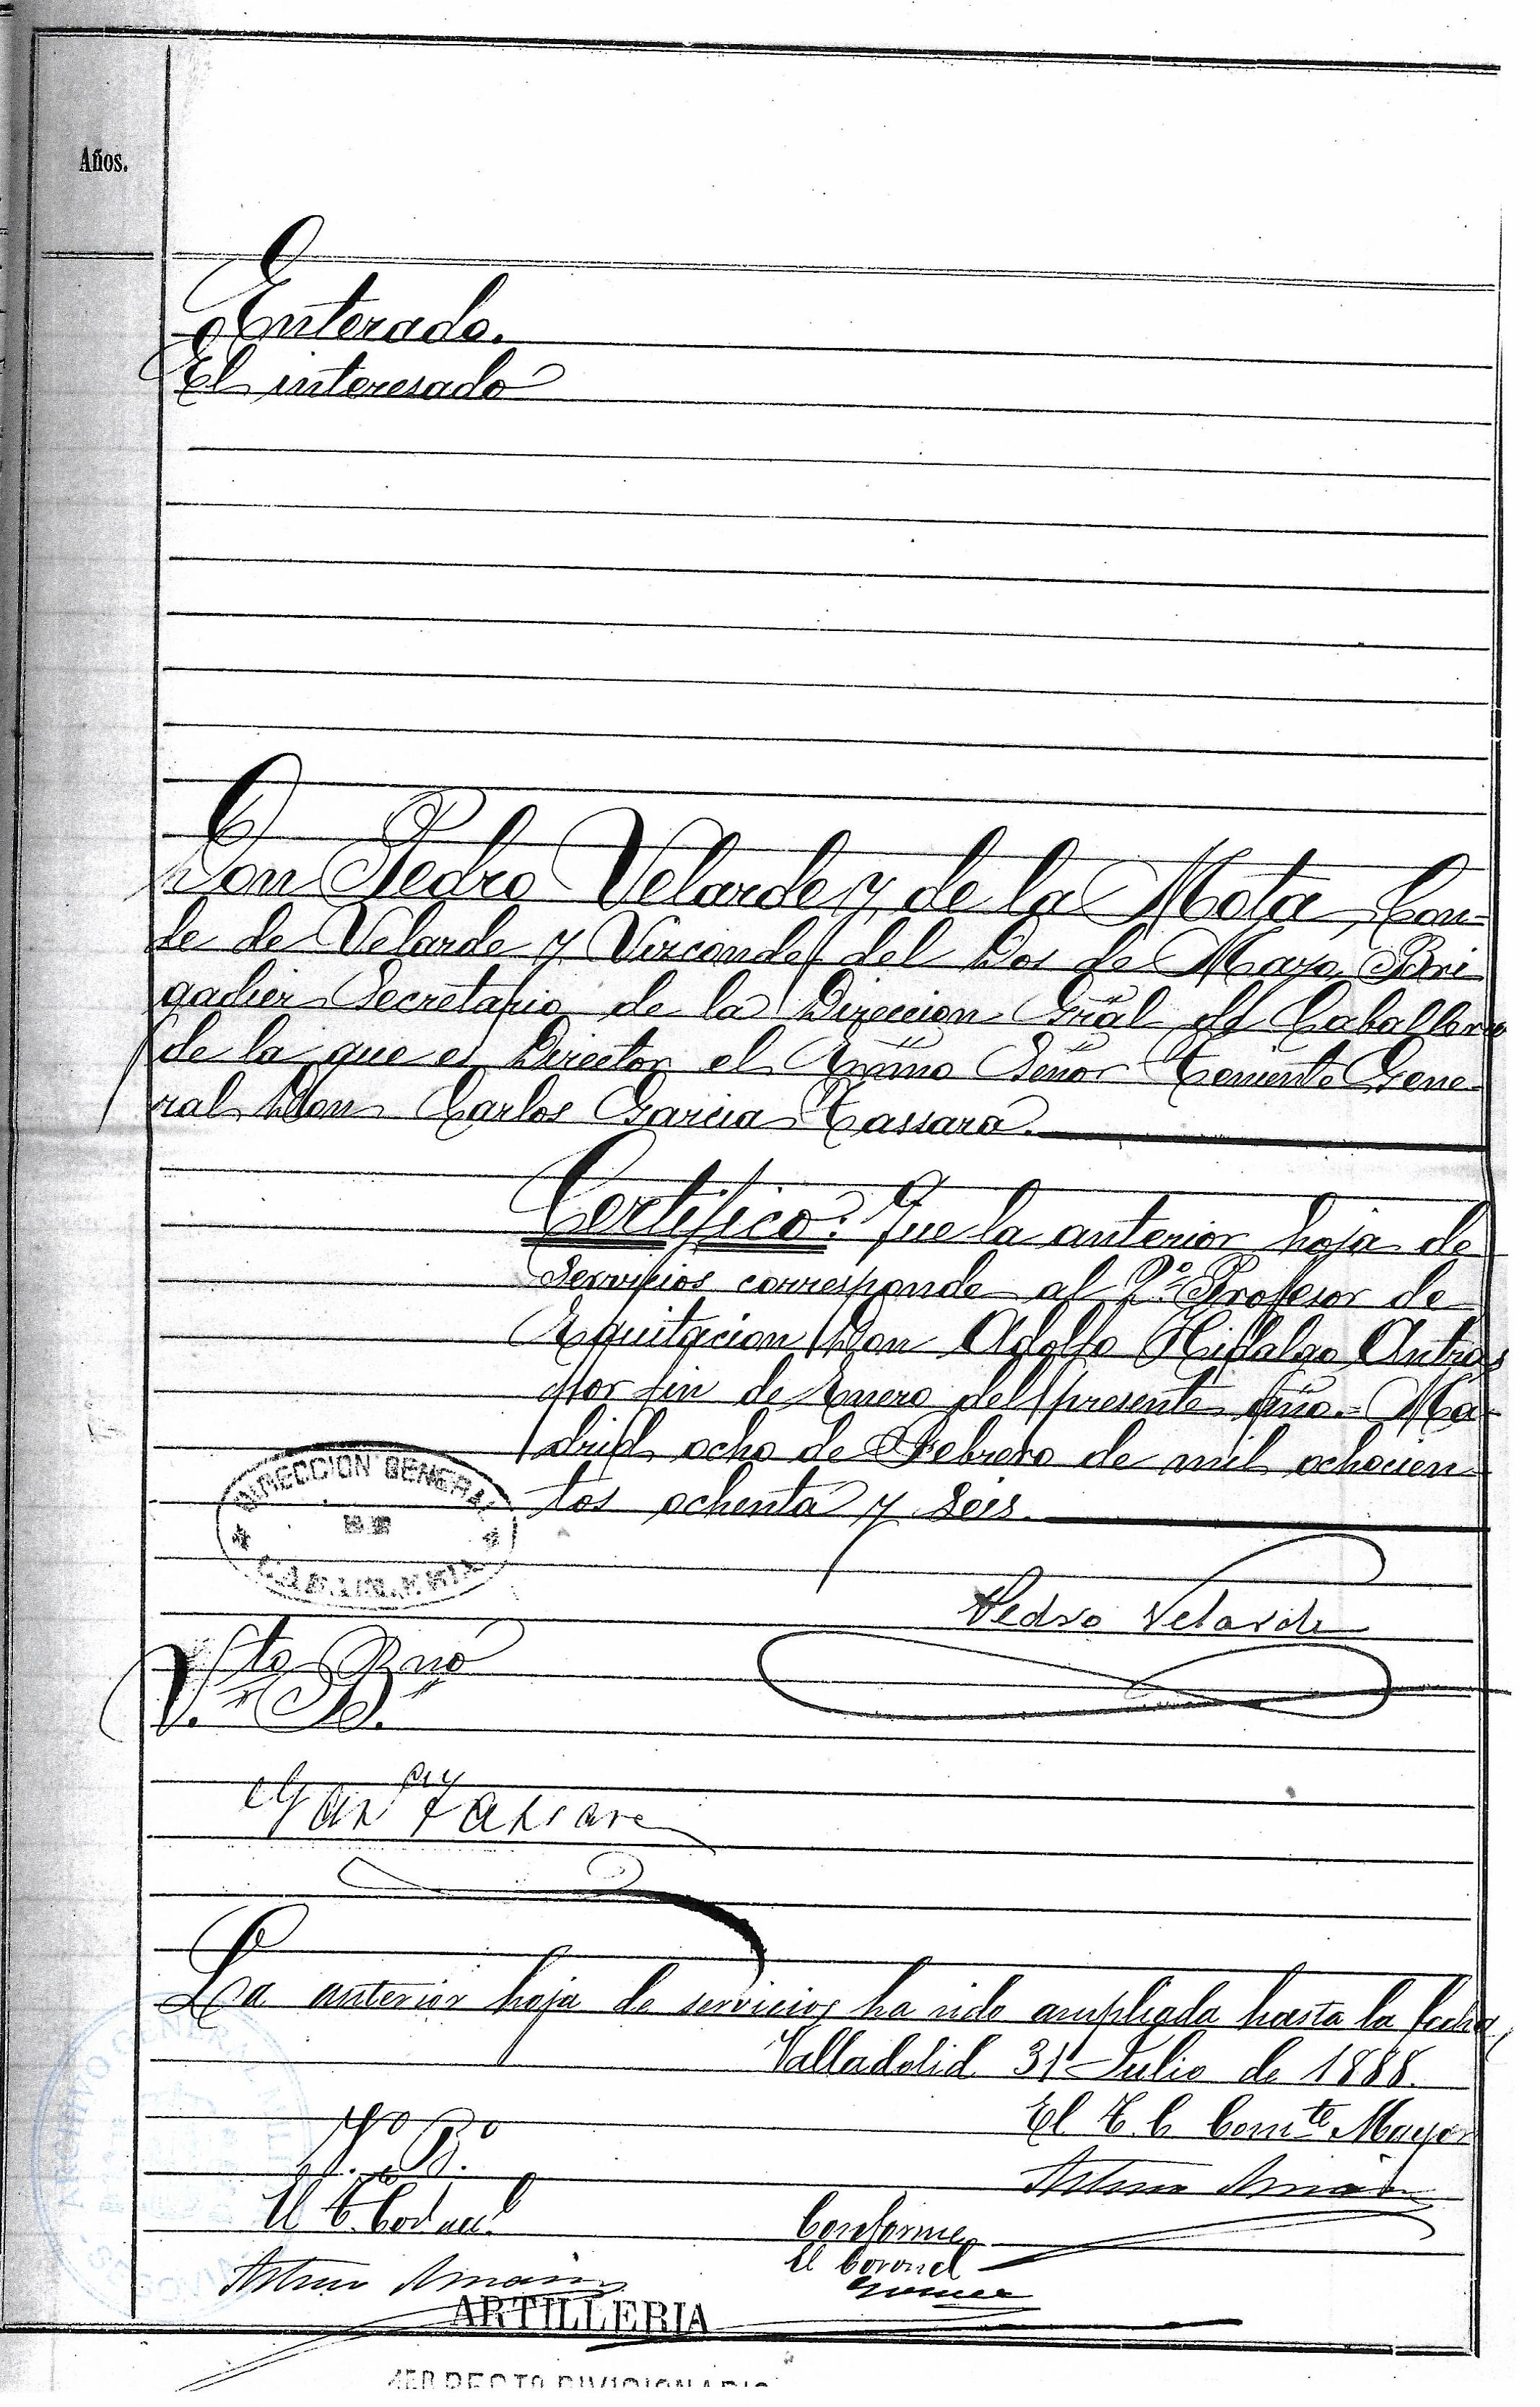 Años.
Enterado.
El interesado
Don Pedro Velarde y de la Mota, Con-
de de Velarde y Vizconde del Dos de Mayo, Bri-
gadier Secretario de la Direccion Gral de Caballeria
de la que es Director el Exmo Señor Teniente Gene-
ral Don Carlos Garcia Tassara.
Certifico: Que la anterior hoja de
Servicios corresponde al 2º Profesor de
Equitacion Don Adolfo Hidalgo Antras
por fin de Enero del presente año.= Ma-
drid ocho de Febrero de mil ochocien-
tos ochenta y seis.
DIRECCION GENERAL
DE
CABALLERIA
Pedro Velarde
Vto Bno
V. B.
Garcia Tassara
La anterior hoja de servicios ha sido ampliada hasta la fecha,
Valladolid 31 Julio de 1888.
El T. C. Comte Mayor
Vº Bº
El T. Coronel
Conforme
El Coronel
ARTILLERIA
DIVISIONARIO
ARCHIVO GENERAL MILITAR
SEGOVIA